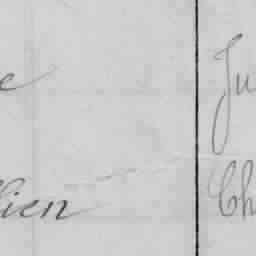 e Ju
lien Ch